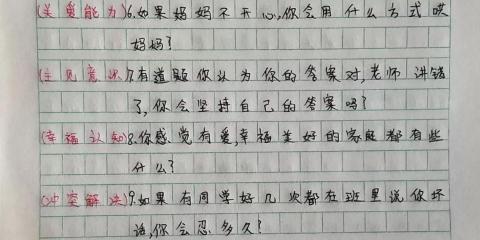 (关爱能力)6.如果妈妈不开心,你会用什么方式哄
妈妈?
(主见意识)7.有道题你认为你的答案对,老师讲错
了,你会坚持自己的答案吗?
(幸福认知)8.你感觉有爱,幸福美好的家庭都有些
什么?
(冲突解决)9.如果有同学好几次都在班里说你坏
话,你会忍多久?